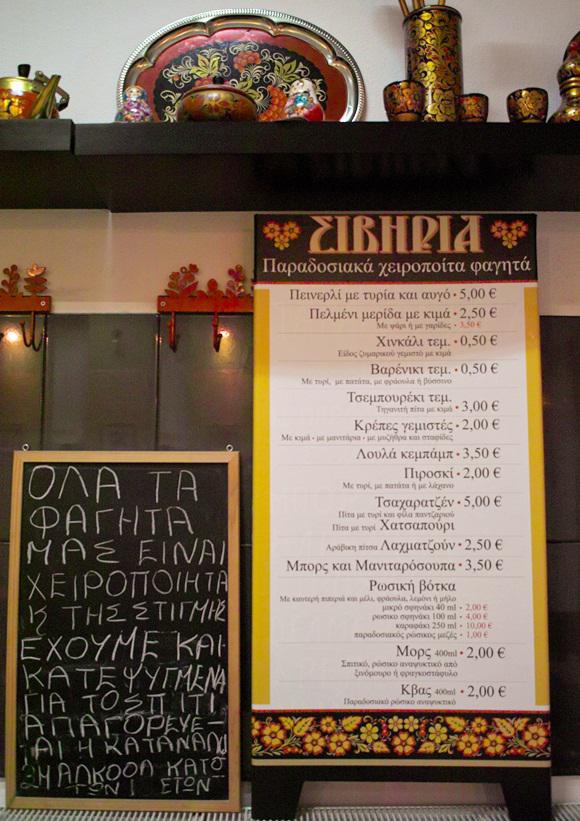 ΣΙΒΗΡΙΑ
Παραδοσιακά χειροποίτα φαγητά
Πεινερλί με τυρία και αυγό • 5,00 €
Πελμένι μερίδα με κιμά • 2,50 €
Με ψάρι ή με γαρίδες • 3,50 €
Χινκάλι τεμ. • 0,50 €
Είδος ζυμαρικού γεμιστό με κιμά
Βαρένικι τεμ. • 0,50 €
Με τυρί, με πατάτα, με φράουλα ή βύσσινο
Τσεμπουρέκι τεμ.
Τηγανιτή πίτα με κιμά • 3,00 €
Κρέπες γεμιστές • 2,00 €
Με κιμά - με μανιτάρια - με μυζήθρα και σταφίδες
Λουλά κεμπάμπ • 3,50 €
Πιροσκί • 2,00 €
Με τυρί, με πατάτα ή με λάχανο
Τσαχαρατζέν • 5,00 €
Πίτα με τυρί και φίλα παντζαριού
Πίτα με τυρί Χατσαπούρι
Αράβικη πίτσα Λαχματζούν • 2,50 €
Μπορς και Μανιταρόσουπα • 3,50 €
Ρωσική βότκα
Με καυτερή πιπεριά και μέλι, φράουλα, λεμόνι ή μήλο
μικρό σφηνάκι 40 ml • 2,00 €
ρωσικο σφηνάκι 100 ml • 4,00 €
καραφάκι 250 ml • 10,00 €
παραδοσιακός ρώσικος μεζές • 1,00 €
Μορς 400ml • 2,00 €
Σπιτικό, ρώσικο αναψυκτικό από
ξινόμουρο ή φραγκοστάφυλο
Κβας 400ml • 2,00 €
Παραδοσιακό ρώσικο αναψυκτικό
ΟΛΑ ΤΑ
ΦΑΓΗΤΑ
ΜΑΣ ΕΙΝΑΙ
ΧΕΙΡΟΠΟΙΗΤΑ
Κ ΤΗΣ ΣΤΙΓΜΗΣ
ΕΧΟΥΜΕ ΚΑΙ
ΚΑΤΕΨΥΓΜΕΝΑ
ΓΙΑ ΤΟ ΣΠΙΤΙ
ΑΠΑΓΟΡΕΥΕ-
ΤΑΙ Η ΚΑΤΑΝΑΛΩ
ΣΗ ΑΛΚΟΟΛ ΚΑΤΩ
ΤΩΝ ΕΤΩΝ